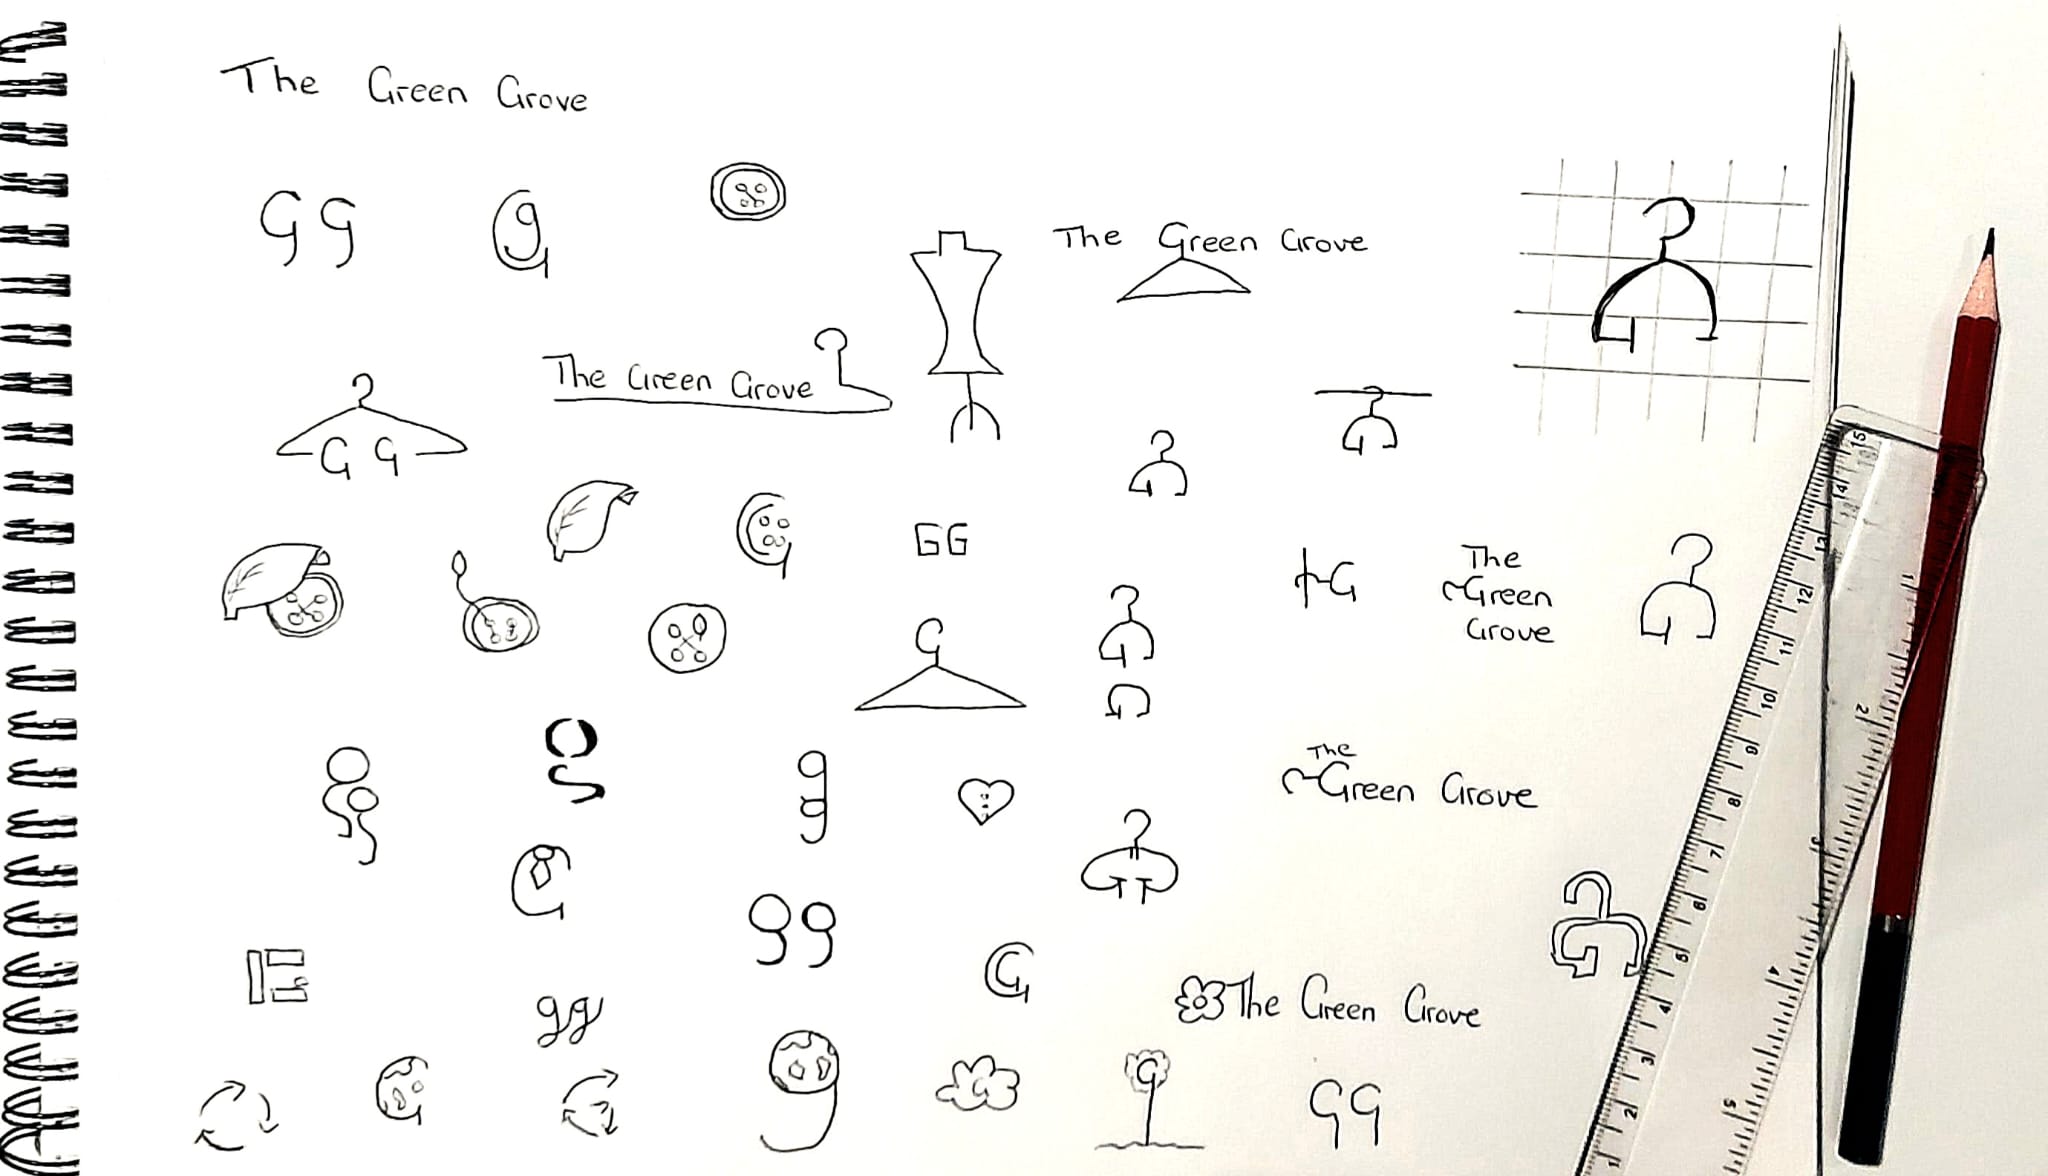 The Green Grove
GG
g
The Green Grove
The Green Grove
GG
GG
G
The
Green
Grove
g
g
The
Green Grove
gg
G
The Green Grove
gg
g
G
GG
15
14
13
12
11
10
9
8
7
6
5
4
3
2
1
1
2
3
4
5